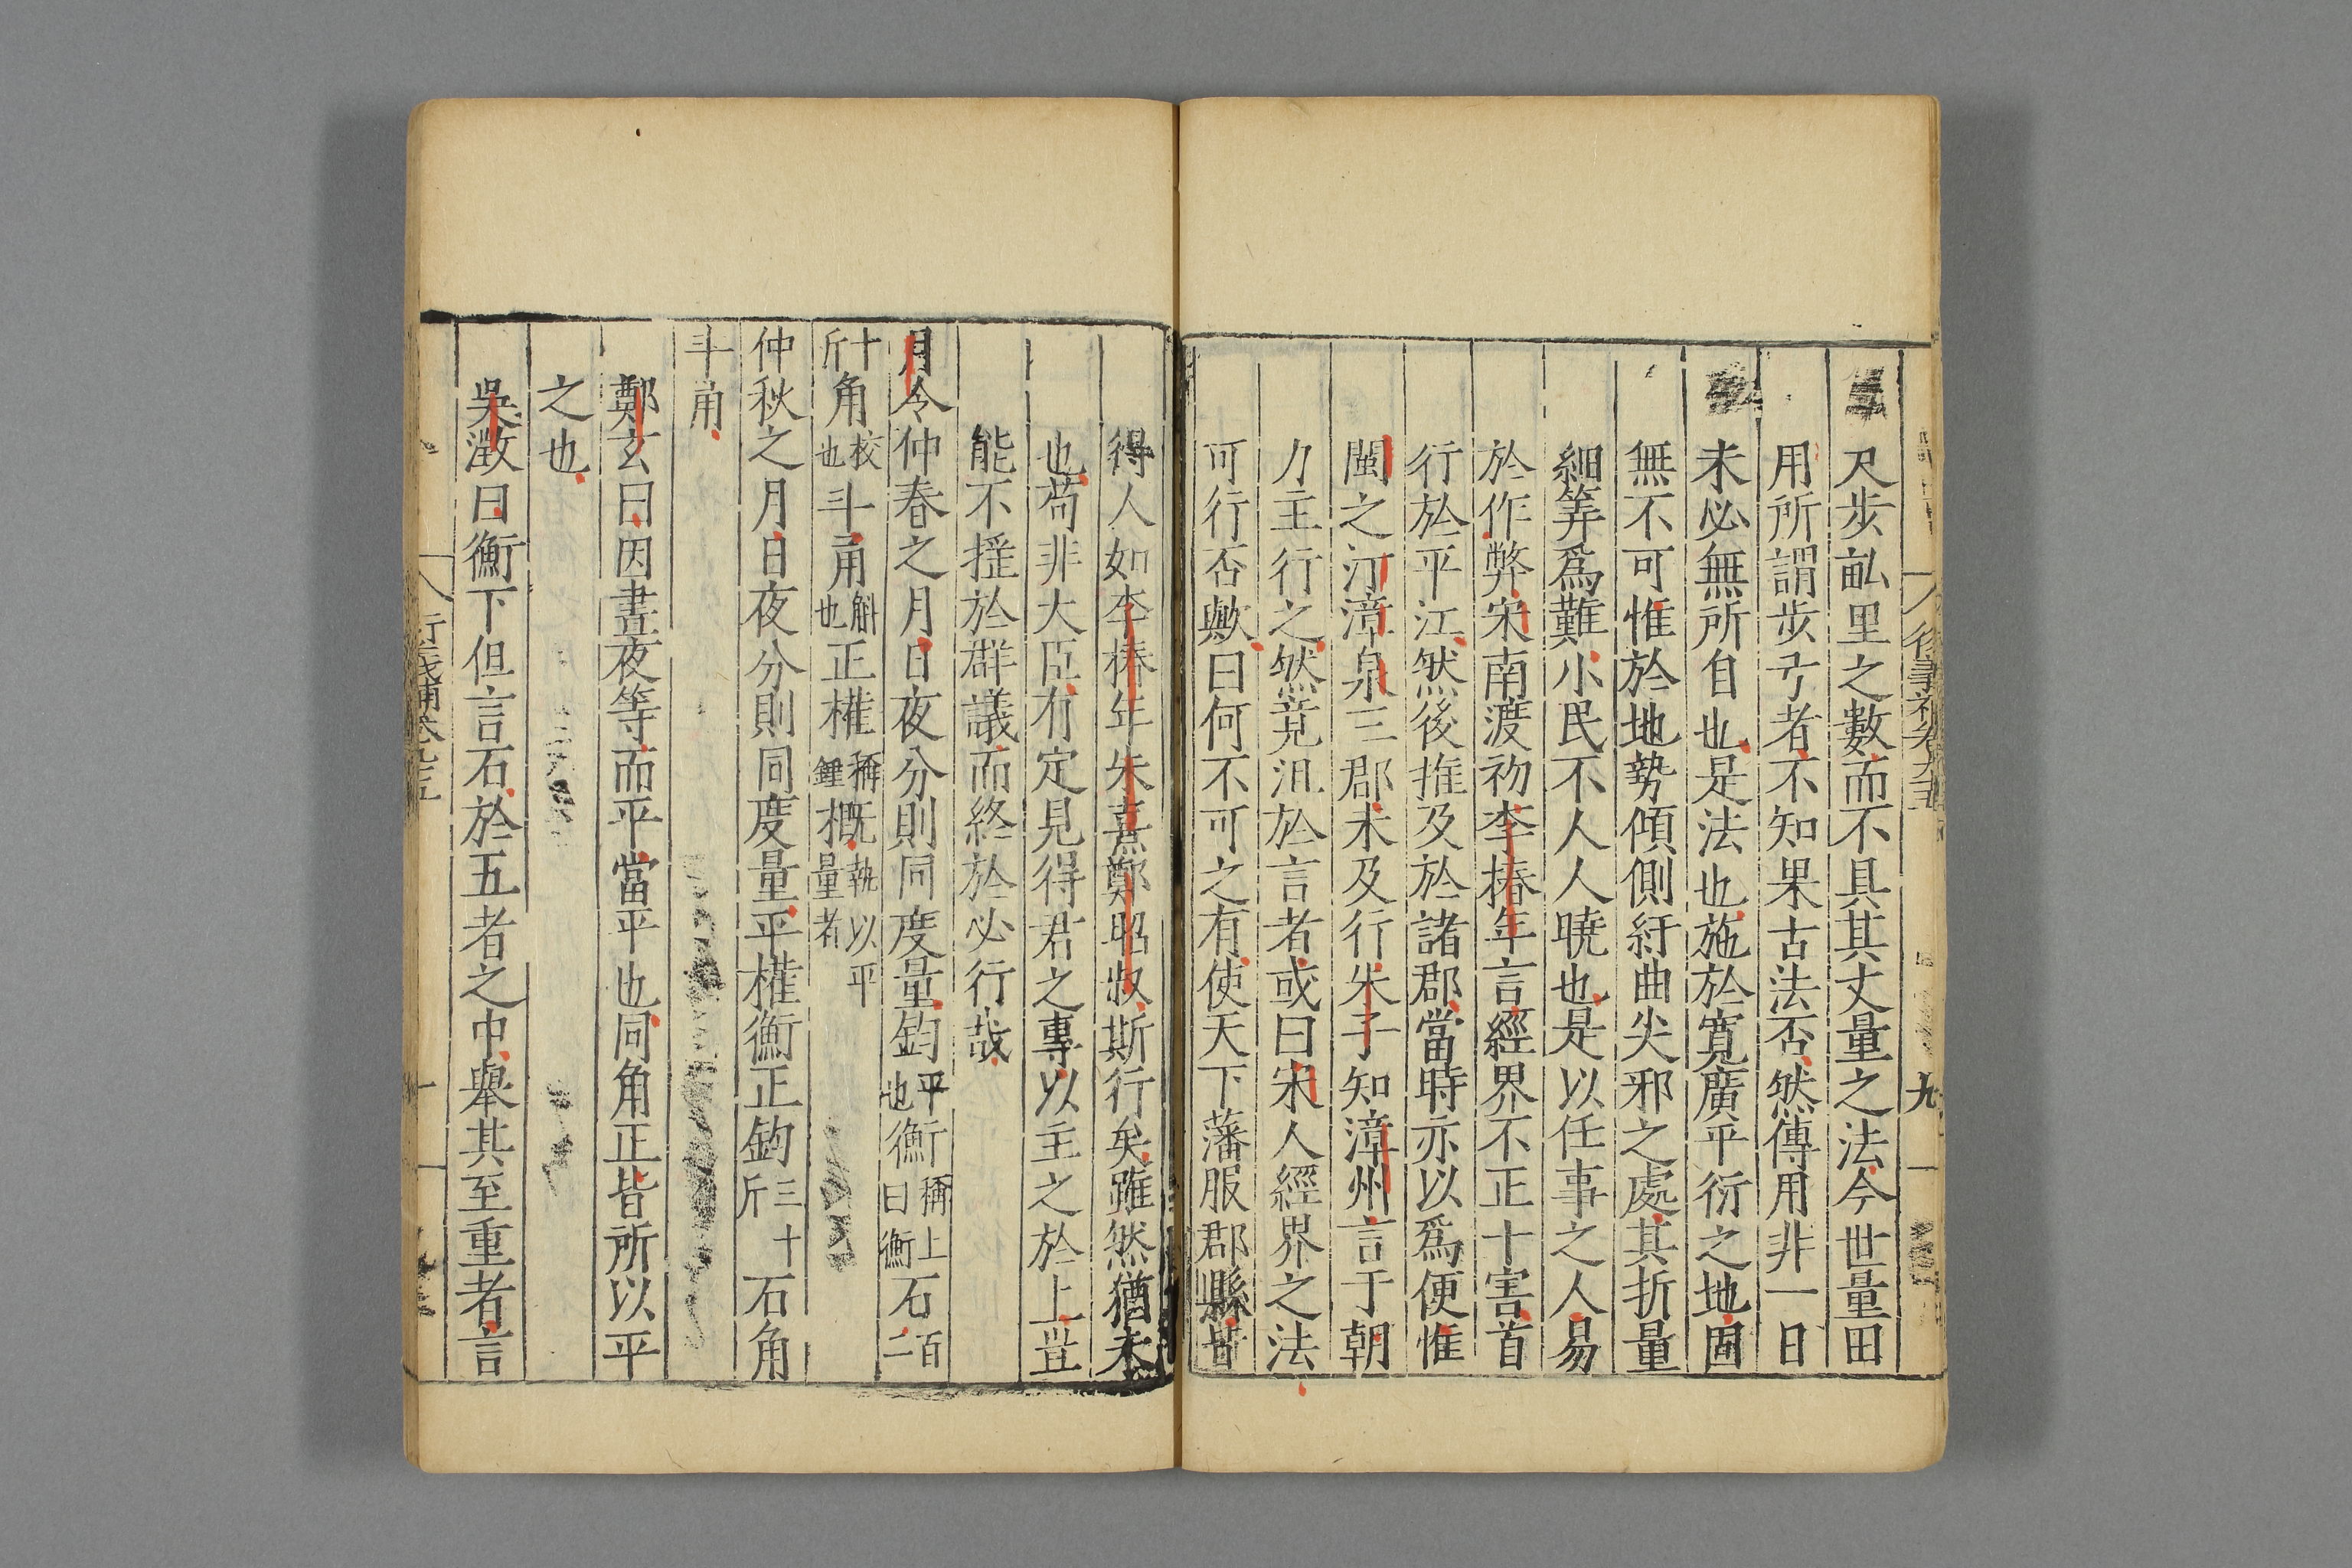 尺步畝里之數而不具其丈量之法今世量田
用所謂步弓者不知果古法否然傳用非一日
未必無所自也是法也施於寬廣平衍之地固
無不可惟於地勢傾側紆曲尖邪之處其折量
細筭爲難小民不人人曉也是以任事之人易
於作弊宋南渡初李椿年言經界不正十害首
行於平江然後推及於諸郡當時亦以爲便惟
閩之汀漳泉三郡未及行朱子知漳州言于朝
力主行之然竟沮於言者或曰宋人經界之法
可行否歟曰何不可之有使天下藩服郡縣皆
得人如李椿年朱熹鄭昭叔斯行矣雖然猶未
也苟非大臣有定見得君之專以主之於上豈
能不搖於群議而終於必行哉
月令仲春之月日夜分則同度量鈞平也衡稱上曰衡石百二
十斤角校也斗甬斛也正權稱錘概執以平量者
仲秋之月日夜分則同度量平權衡正鈞三十斤石角
斗甬
鄭玄曰因晝夜等而平當平也同角正皆所以平
之也
吳澂曰衡下但言石於五者之中舉其至重者言